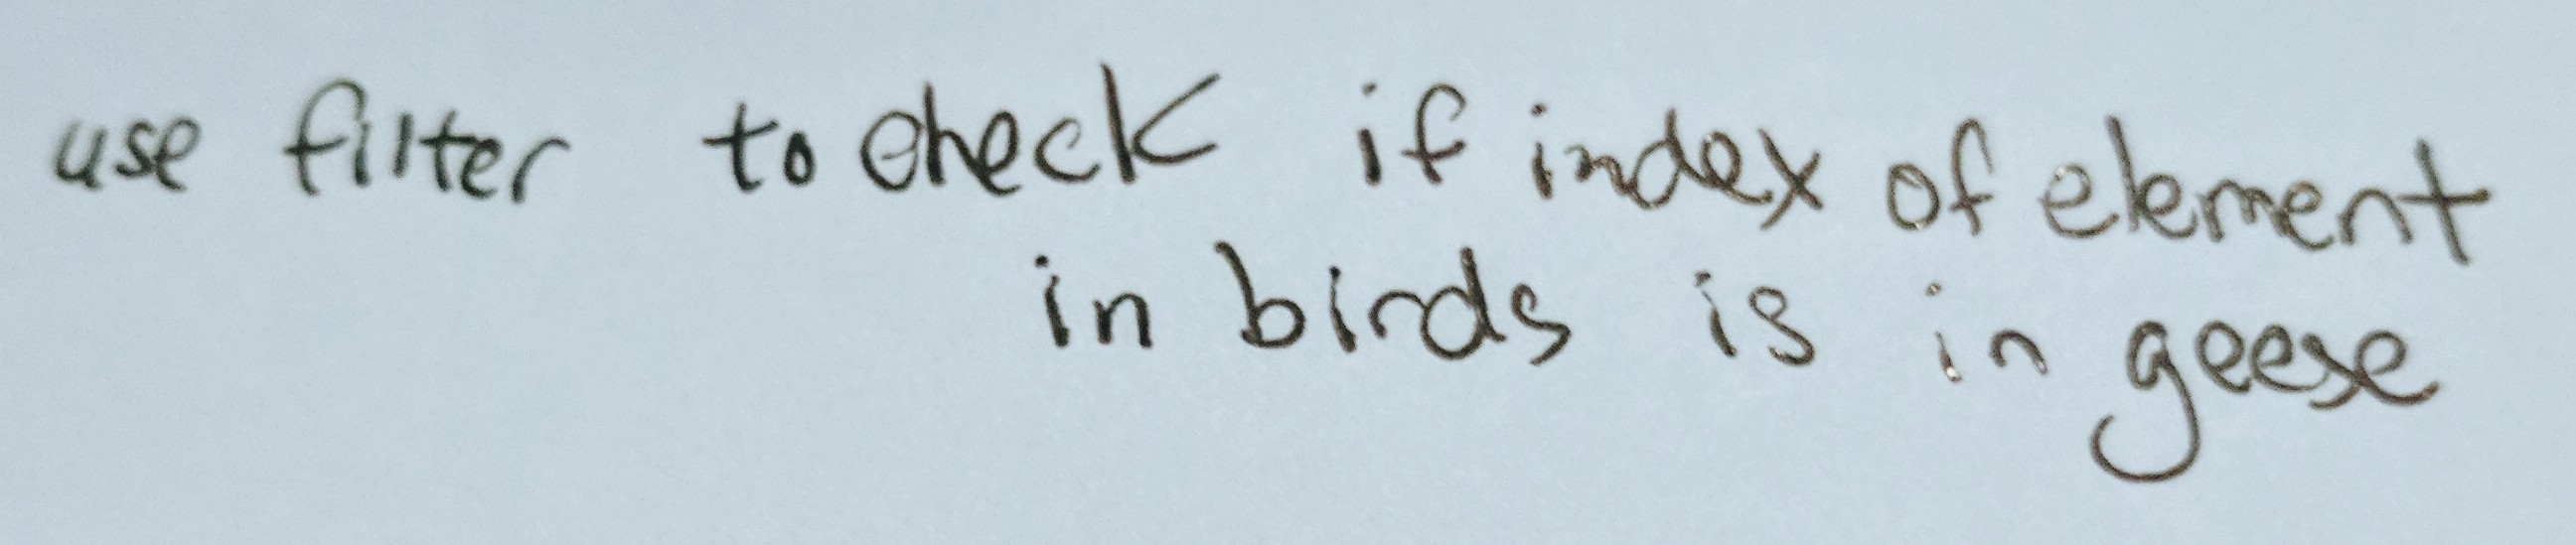 use filter to check if index of element
in birds is in geese